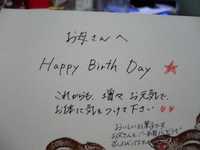 お母さんへ
Happy Birth Day
これからも、増々お元気で、
お体に気をつけて下さい
おいしいお菓子を